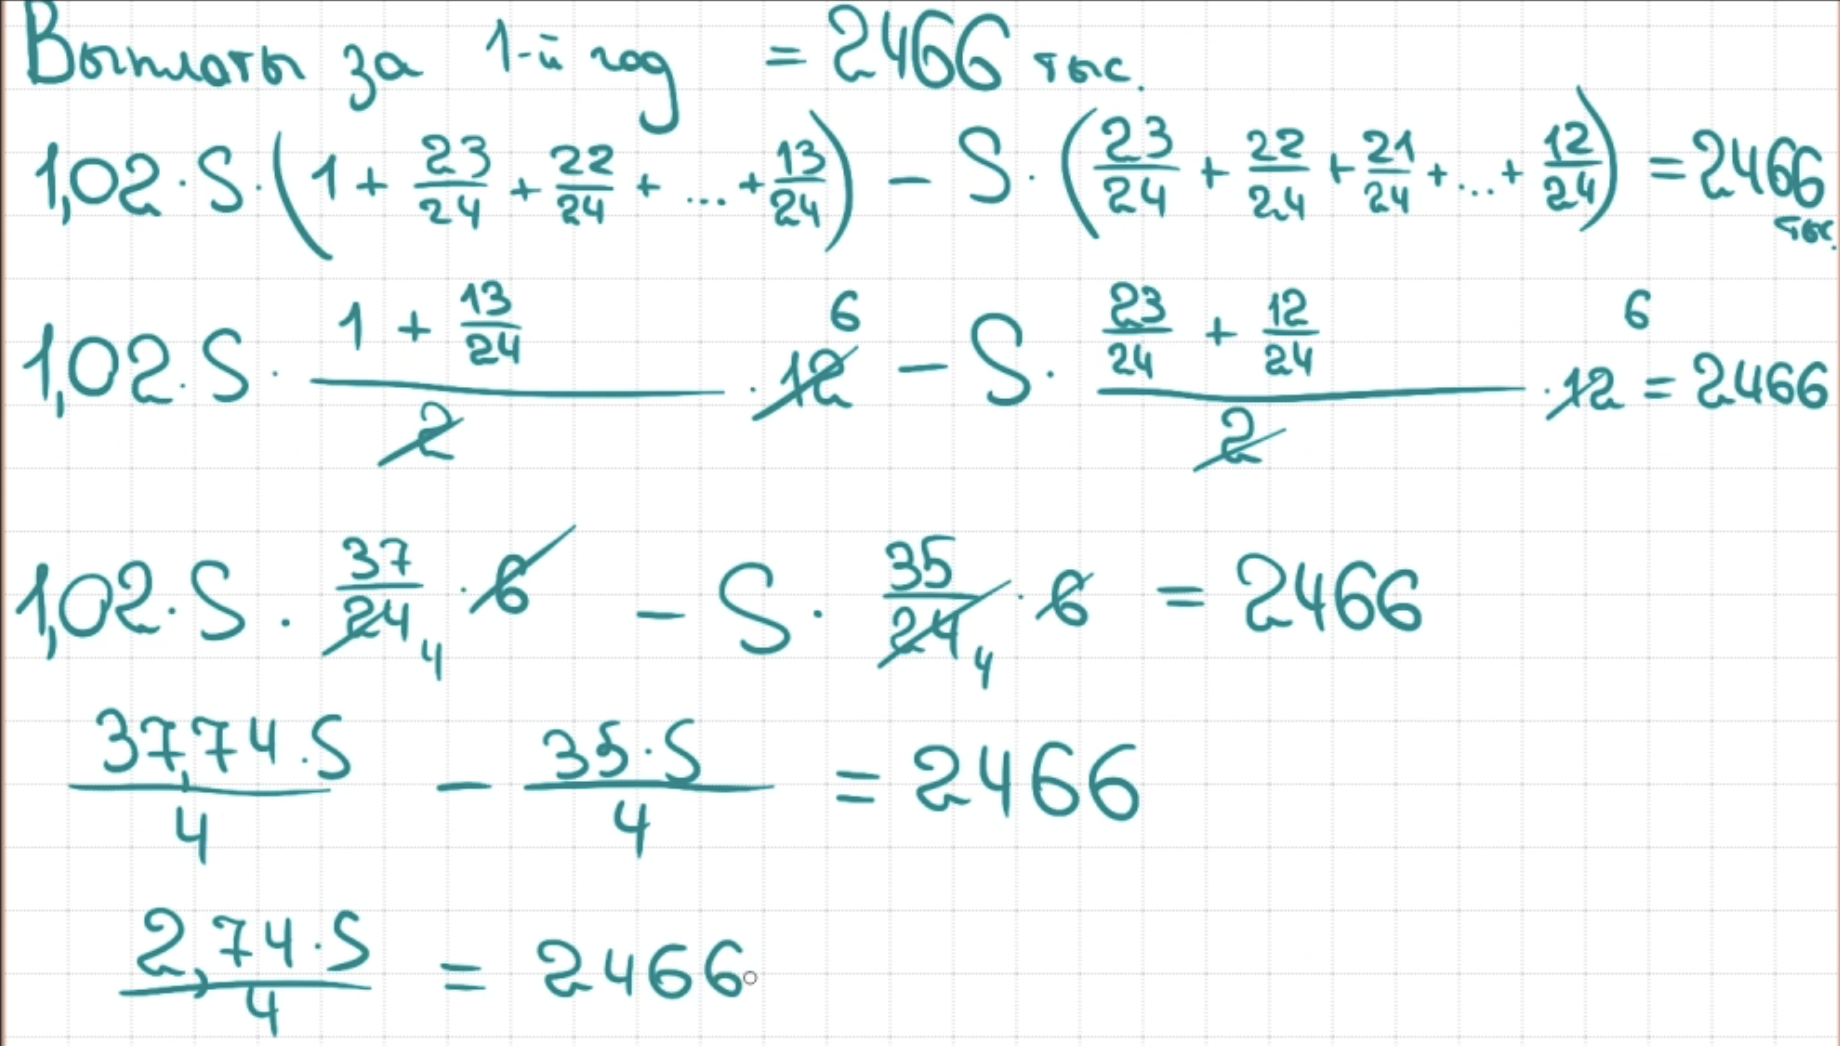 Выплаты за 1-й год = 2466 тыс.
1,02·S·(1 + 23/24 + 22/24 + ... + 13/24) − S·(23/24 + 22/24 + 21/24 + ... + 12/24) = 2466 тыс.
1,02·S· (1 + 13/24)/2 · 12 6 − S· (23/24 + 12/24)/2 · 12 6 = 2466
1,02·S· 37/24 4 · 6 − S· 35/24 4 · 6 = 2466
37,74·S/4 − 35·S/4 = 2466
2,74·S/4 = 2466